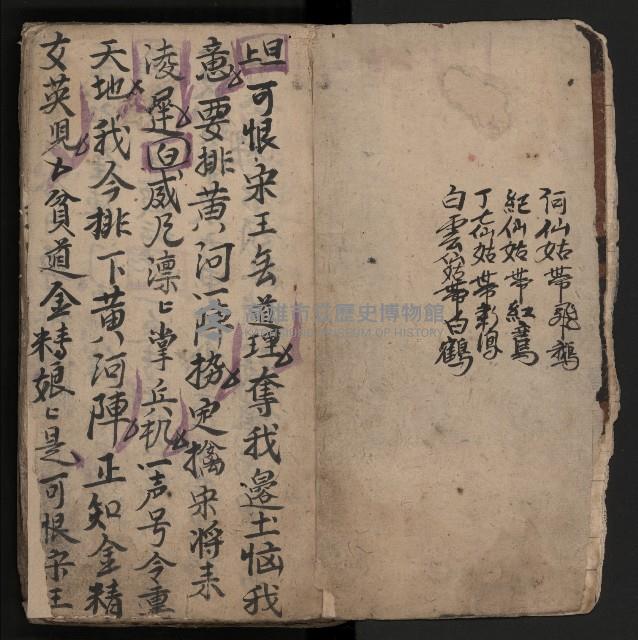 何仙姑帶飛鵝
紀仙姑帶紅鸞
丁七仙姑帶彩鳳
白雲仙姑帶白鶴
旦上
可恨宋王無道理奪我邊土惱我
意要排黃河陣协定擒宋將来
凌遲白威凡凛〻掌兵机一声号令重
天地我今排下黃河陣正知金精
女英児〻貧道金精娘〻是可恨宋王
高雄市立歷史博物館
KAOHSIUNG MUSEUM OF HISTORY